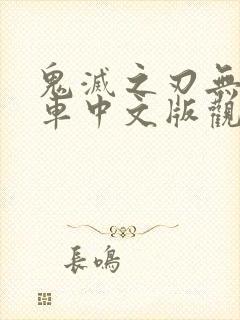 鬼滅之刃無
車中文版觀
長鳴